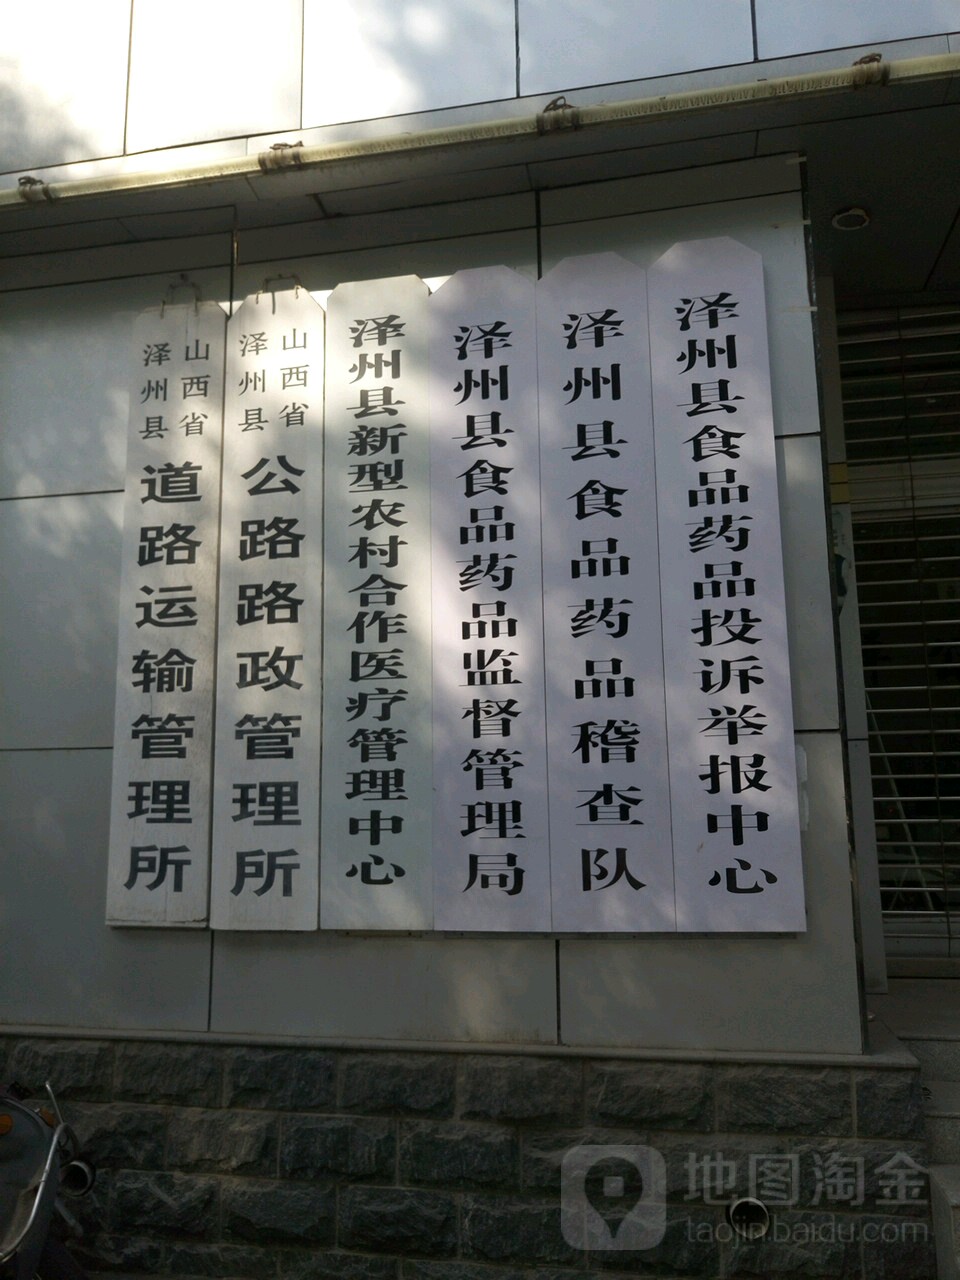 山西省
泽州县
道路运输管理所
山西省
泽州县
公路路政管理所
泽州县新型农村合作医疗管理中心
泽州县食品药品监督管理局
泽州县食品药品稽查队
泽州县食品药品投诉举报中心
地图淘金
taojin.baidu.com